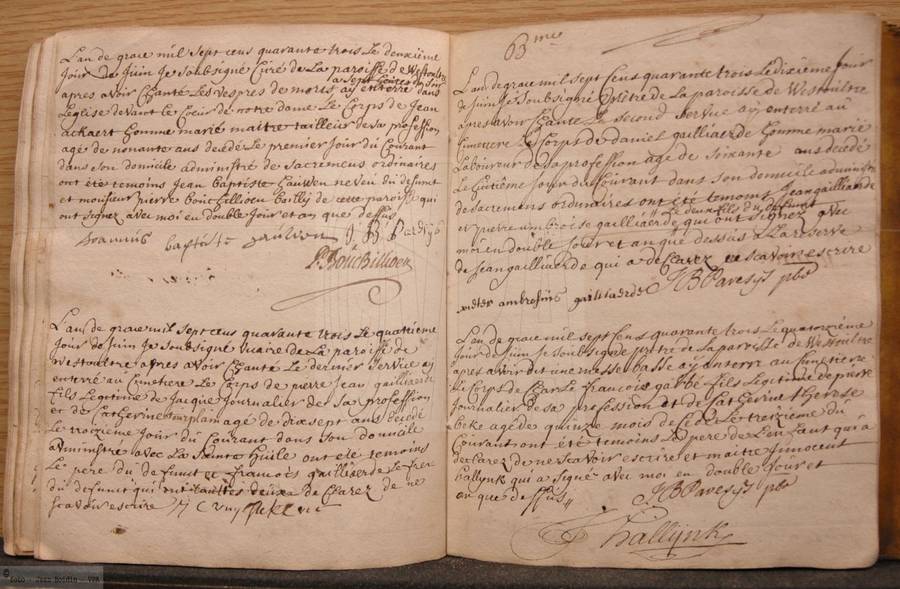 L'an de grace mil sept cens quarante trois Le deuxiême
jour de Juin Je soubsigné Curé de La paroisse de Westoultre
a sept heures du soir
apres avoir Chanté Les Vespres de mores ay enterré dans
Leglise devant le Coeur de notre dame Le Corps de Jean
ackaert homme marié maitre tailleur de sa profession
agé de nonante ans decedé Le premier Jour du Courant
dans son domicile administré de sacremens ordinaires
ont été temoins Jean Baptiste hauwen neveu du defunt
et monsieur pierre bouchillioen bailly de cette paroisse qui
ont signez avec moi en double Jour et an que dessus
Joannis baptiste
P. Bouchillioen
L'an de grace mil sept cens quarante trois Le quatrieme
Jour de Juin Je soubsigné vicaire de La paroisse de
Westoultre apres avoir Chanté Le dernier service ay
enterré au Cimetiere Le Corps de pierre jean gailliaerde
fils Legitime de Jacque Journalier de sa profession
et de Catherine agé de dix sept ans decedé
Le troizieme Jour du Courant dans son domicile
administré avec La Sainte huile ont été temoins
Le pere du defunt et françois gailliaerde Le frere
du defunt qui ont declarez de ne
scavoir escrire
63 me
L'an de grace mil sept Cens quarante trois Le dixieme jour
de Juin Je soubsigné Prêtre de La paroisse de Westoultre
apres avoir Chanté Le second service ay enterré au
Cimetiere Le Corps de daniel gailliaerde homme marié
Laboureur de sa profession agé de soixante ans decedé
Le huitiême jour du Courant dans son domicile administré
de sacremens ordinaires ont été temoins Jean gailliaerde
Les deux fils du defunt
et pierre ambroise gailliaerde qui ont signez avec
moi en double Jour et an que dessus a La reserve
de Jean gailliaerde qui a declarez ne scavoir escrire
pieter ambrosius gailliaerde JB Paresys pbr
L'an de grace mil sept Cens quarante trois Le quatorzième
jour de Juin Je soubsigné prêtre de La paroisse de Westoultre
apres avoir dit une messe basse ay enterré au Cimetierre
Le Corps de Charle françois fils Legitime de pierre
Journalier de sa profession et de Therese
agé de quinze mois decedé Le treizieme du
Courant ont été temoins Le pere de L'enfant qui a
declarez de ne scavoir escrire et maitre Innocent
hallynk qui a signé avec moi en double Jour et
an que dessus
JB Paresys pbr
hallynk
foto - Jean Boidin - VVK